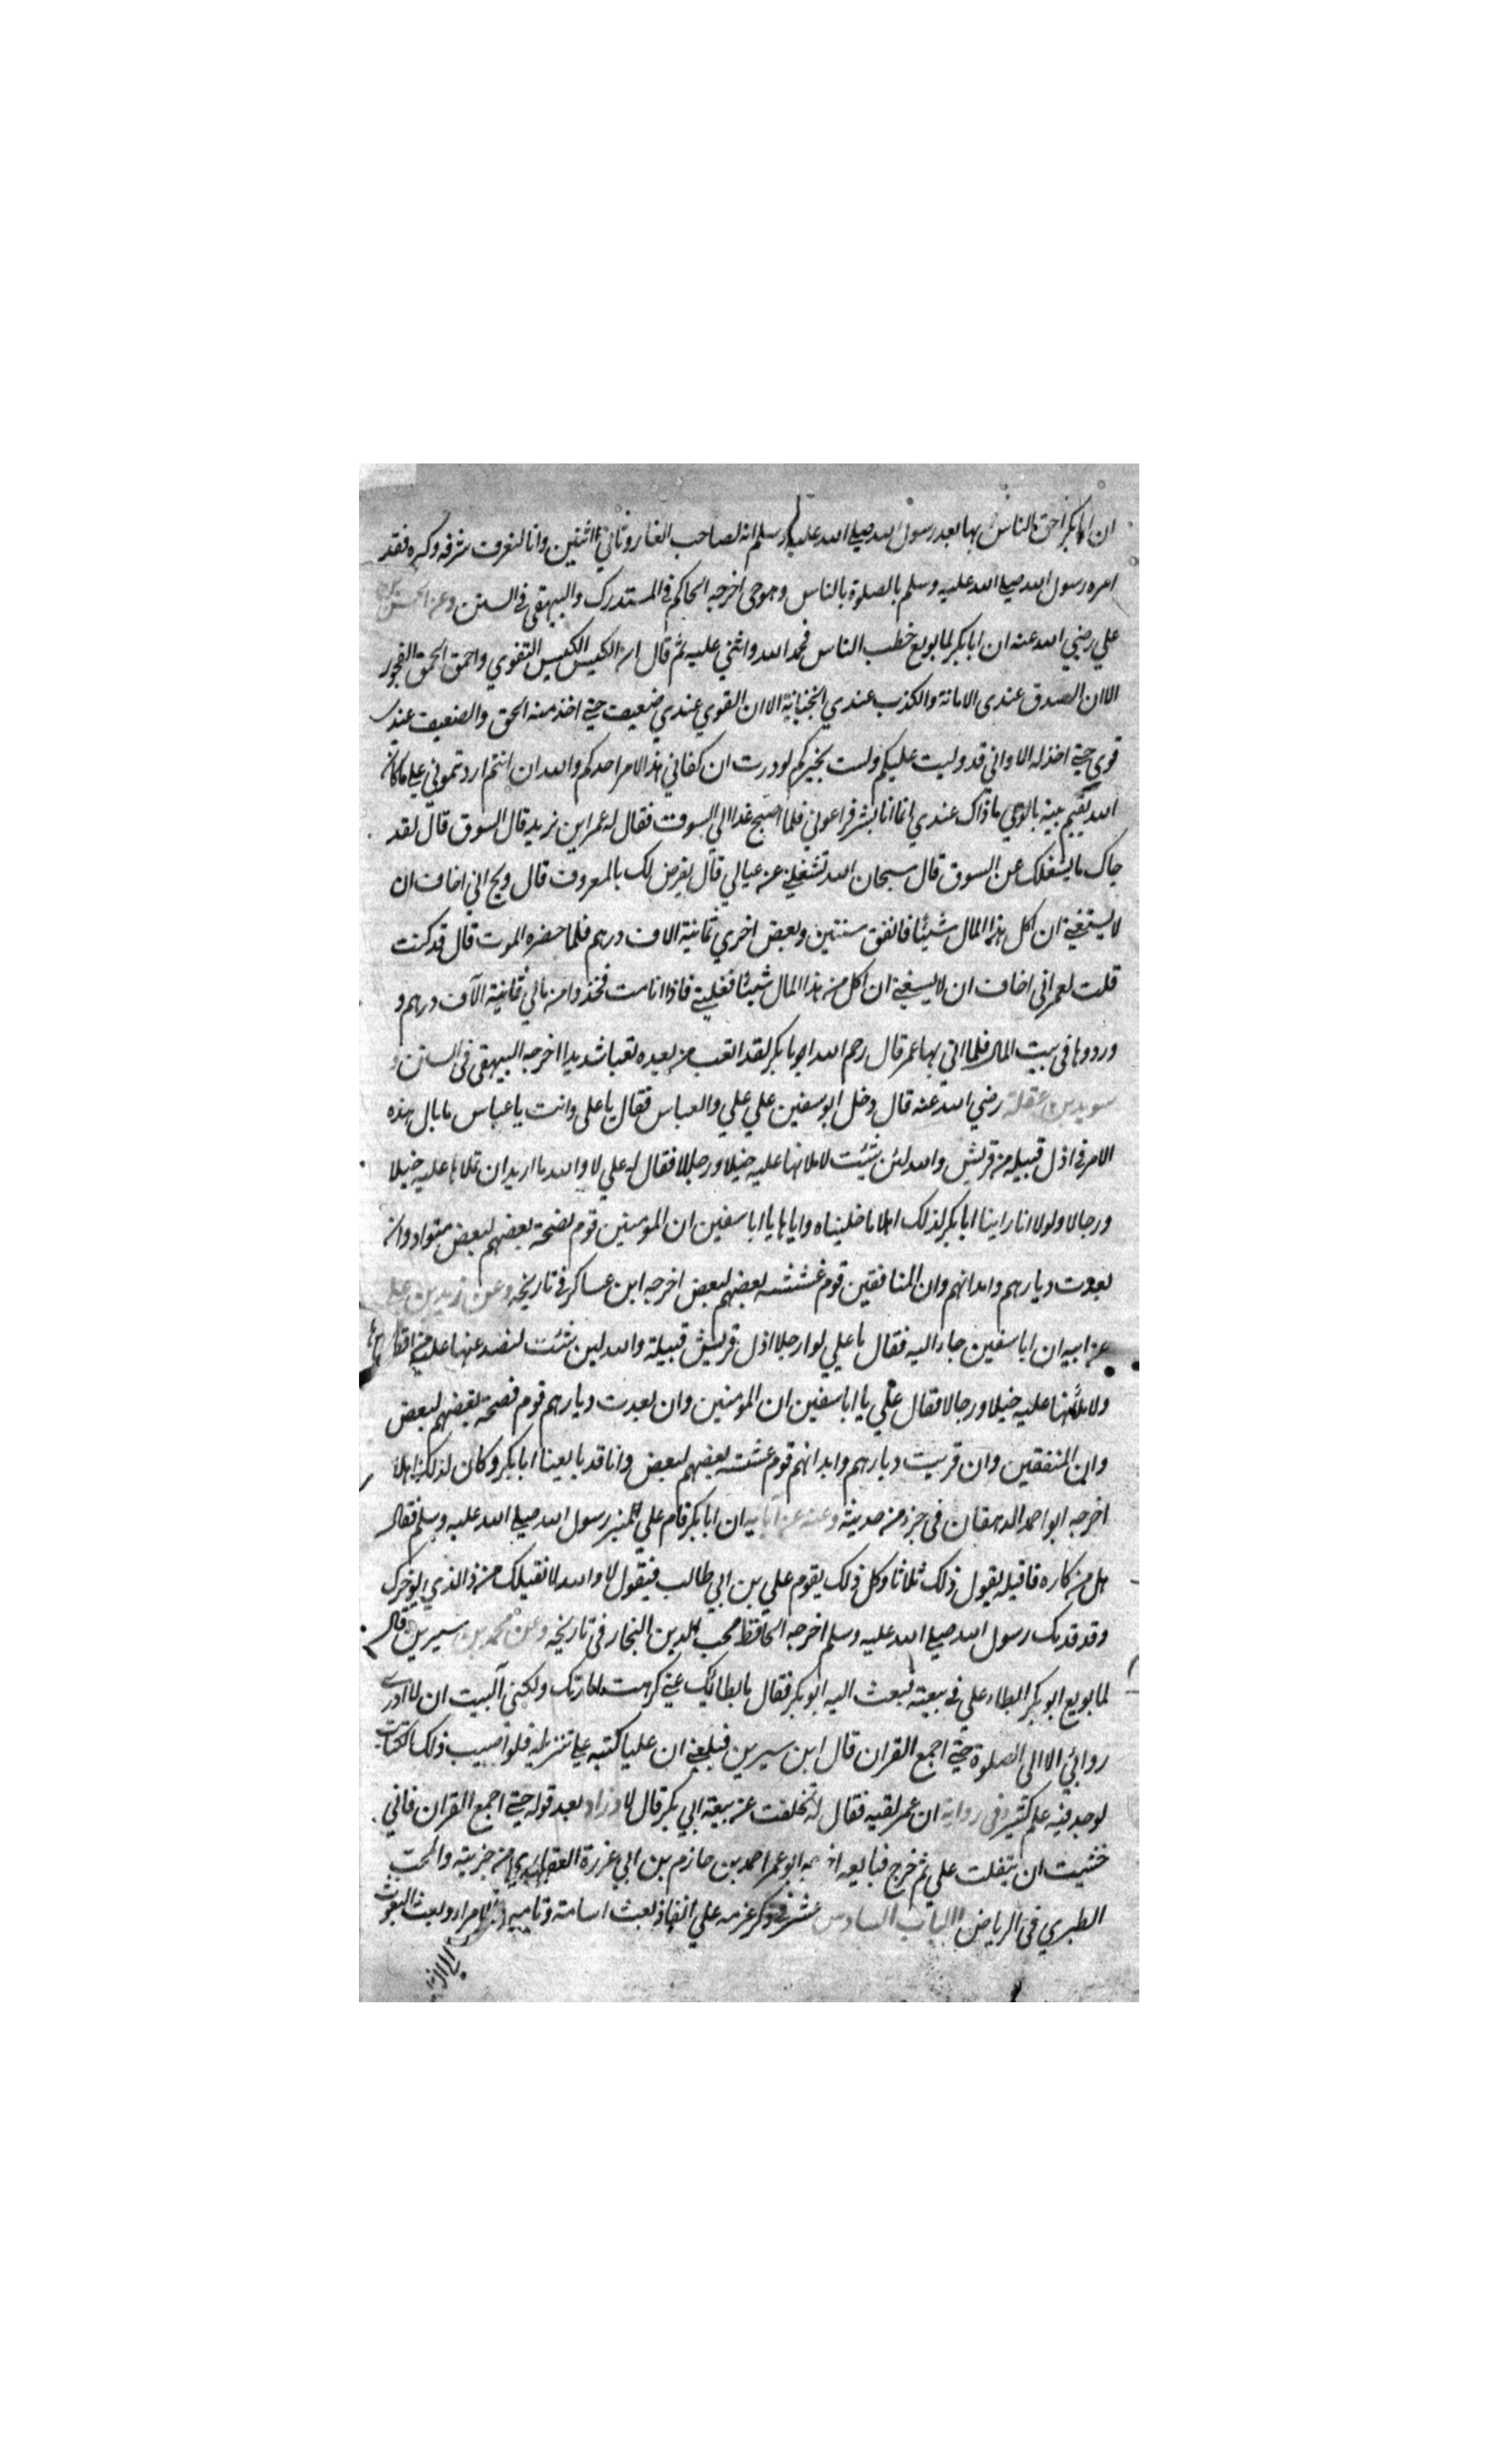 ان ابابكر احق الناس بها بعد رسول الله صلى الله عليه وسلم انه لصاحب الغار وثاني اثنين وانا لنعرف شرفه وكبره فقد
امره رسول الله صلى الله عليه وسلم بالصلوة بالناس وهو حي اخرجه الحاكم في المستدرك والبيهقي في السنن وعن الحسن بن
علي رضي الله عنه ان ابابكر لما بويع خطب الناس فحمد الله واثني عليه ثم قال ان الكيس الكيس التقوي واحمق الحمق الفجور
الا ان الصدق عندى الامانة والكذب عندي الخيانة الا ان القوي عندي ضعيف حتى اخذ منه الحق والضعيف عندى
قوي حتى اخذ له الا واني قد وليت عليكم ولست بخيركم لوددت ان كفاني هذا الامر احدكم والله ان انتم اردتموني علي ما كان
الله يقيم نبيه بالوحي ما ذاك عندي انما انا بشر فراعوني فلما اصبح غدا الي السوق فقال له عمر اين تريد قال السوق قال لقد
جاك ما يشغلك عن السوق قال سبحان الله تشغلني عن عيالي قال يفرض لك بالمعروف قال ويح اني اخاف ان
لا يسعني ان اكل هذا المال شيئا فانفق سنتين وبعض اخري ثمانية الاف درهم فلما حضره الموت قال قد كنت
قلت لعمر اني اخاف ان لا يسعني ان اكل من هذا المال شيئا فغلبني فاذا انا مت فخذوا من مالي ثمانية الآف درهم و
وردوها في بيت المال فلما اتي بها عمر قال رحم الله ابابكر لقد اتعب من بعده تعبا شديدا اخرجه البيهقي في السنن و
سويد بن غفلة رضي الله عنه قال دخل ابو سفين علي علي والعباس فقال يا على وانت يا عباس ما بال هذه
الامر في اذل قبيله من قريش والله لئن شئت لاملانها عليه خيلا ورجالا فقال له علي لا والله ما اريد ان تملاها عليه خيلا
ورجالا ولولا انا راينا ابابكر لذلك اهلا ما خليناه واياها يا ابا سفين ان المومنين قوم نصحة بعضهم لبعض متوادون
بعدت ديارهم وابدانهم وان المنافقين قوم غششه بعضهم لبعض اخرجه ابن عساكر في تاريخه وعن زيد بن علي
عن ابيه ان ابا سفين جاء اليه فقال يا علي اذل قريش قبيلة والله لين شئت
ولاملأنها عليه خيلا ورجالا فقال علي يا ابا سفين ان المومنين وان بعدت ديارهم قوم نصحة بعضهم لبعض
وان المنفقين وان قربت ديارهم وابدانهم قوم غششه بعضهم لبعض وانا قد بايعنا ابابكر وكان لذلك اهلا
اخرجه ابو احمد الدهقان في جزء من حديثه وعنه عن آبايه ان ابابكر قام علي منبر رسول الله صلى الله عليه وسلم فقال
هل من كاره فاقيله يقول ذلك ثلاثا وكل ذلك يقوم علي بن ابي طالب فيقول لا والله لا نقيلك من ذا الذي يوخرك
وقد قدمك رسول الله صلى الله عليه وسلم اخرجه الحافظ محب الدين النجار في تاريخه وعن محمد بن سيرين قال
لما بويع ابو بكر ابطاء علي في بيعته فبعث اليه ابو بكر فقال ما بطائك عني كرهت امارتك ولكني آليت ان لا ارتدى
روائي الا الى الصلوة حتى اجمع القران قال ابن سيرين فبلغني ان عليا كتبه علي تنزيله فلو اصيب ذلك الكتاب
لوجد فيه علم كثير وفي رواية ان عمر لقيه فقال له تخلفت عن بيعة ابي بكر قال لا وزاد بعد قوله حتى اجمع القران فاني
خشيت ان يتفلت علي ثم خرج فبايعه اخرجه ابو عمر احمد بن حازم بن ابي غرزة من جزيئه والمحب
الطبري في الرياض الباب السادس عشر في ذكر عزمه علي انفاذ بعث اسامة الامراء وبعث البعوث